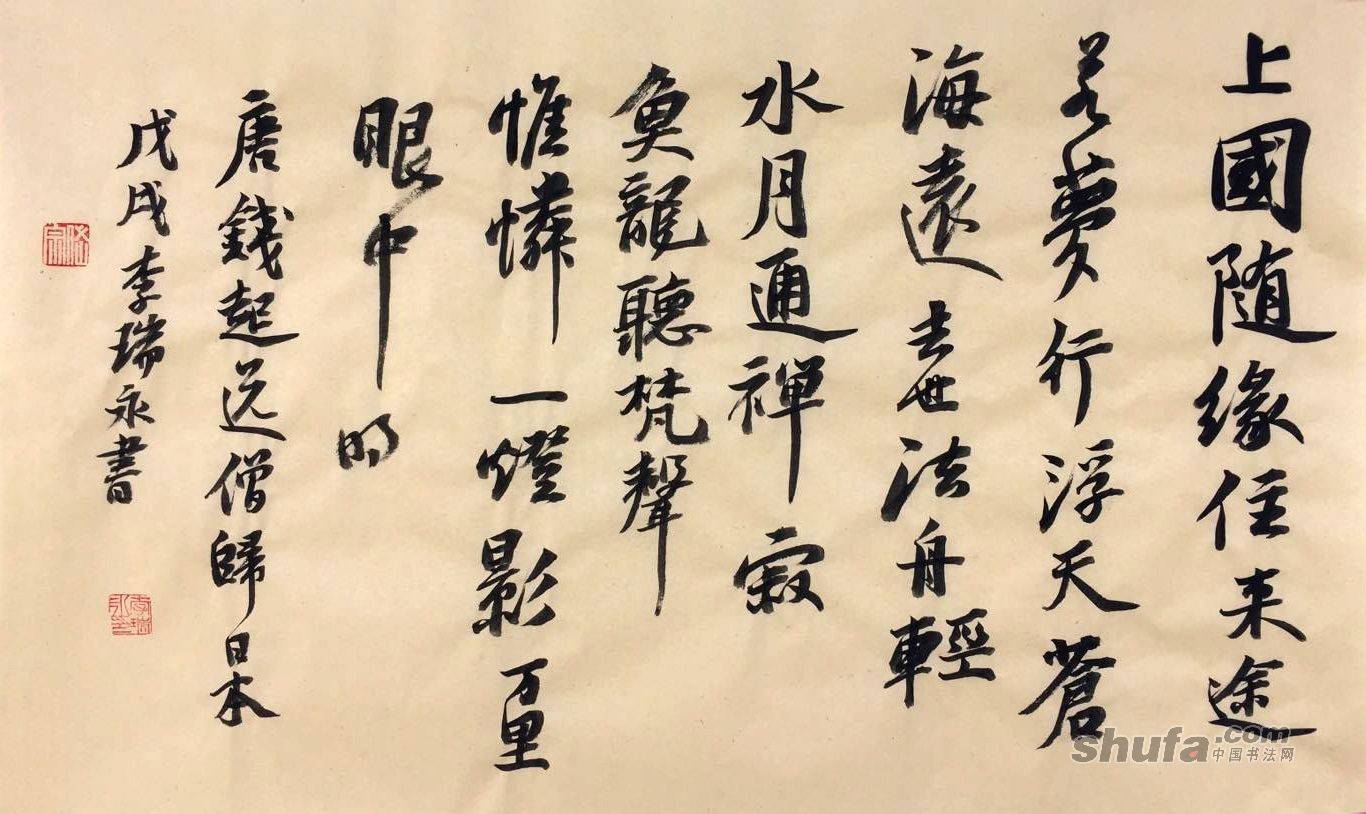 上國随緣住来途
若夢行浮天蒼
海遠去世法舟輕
水月通禪寂
魚龍聽梵聲
惟憐一燈影万里
眼中明
唐錢起送僧歸日本
戊戌李瑞永書
李瑞永印
shufa.com
中国书法网